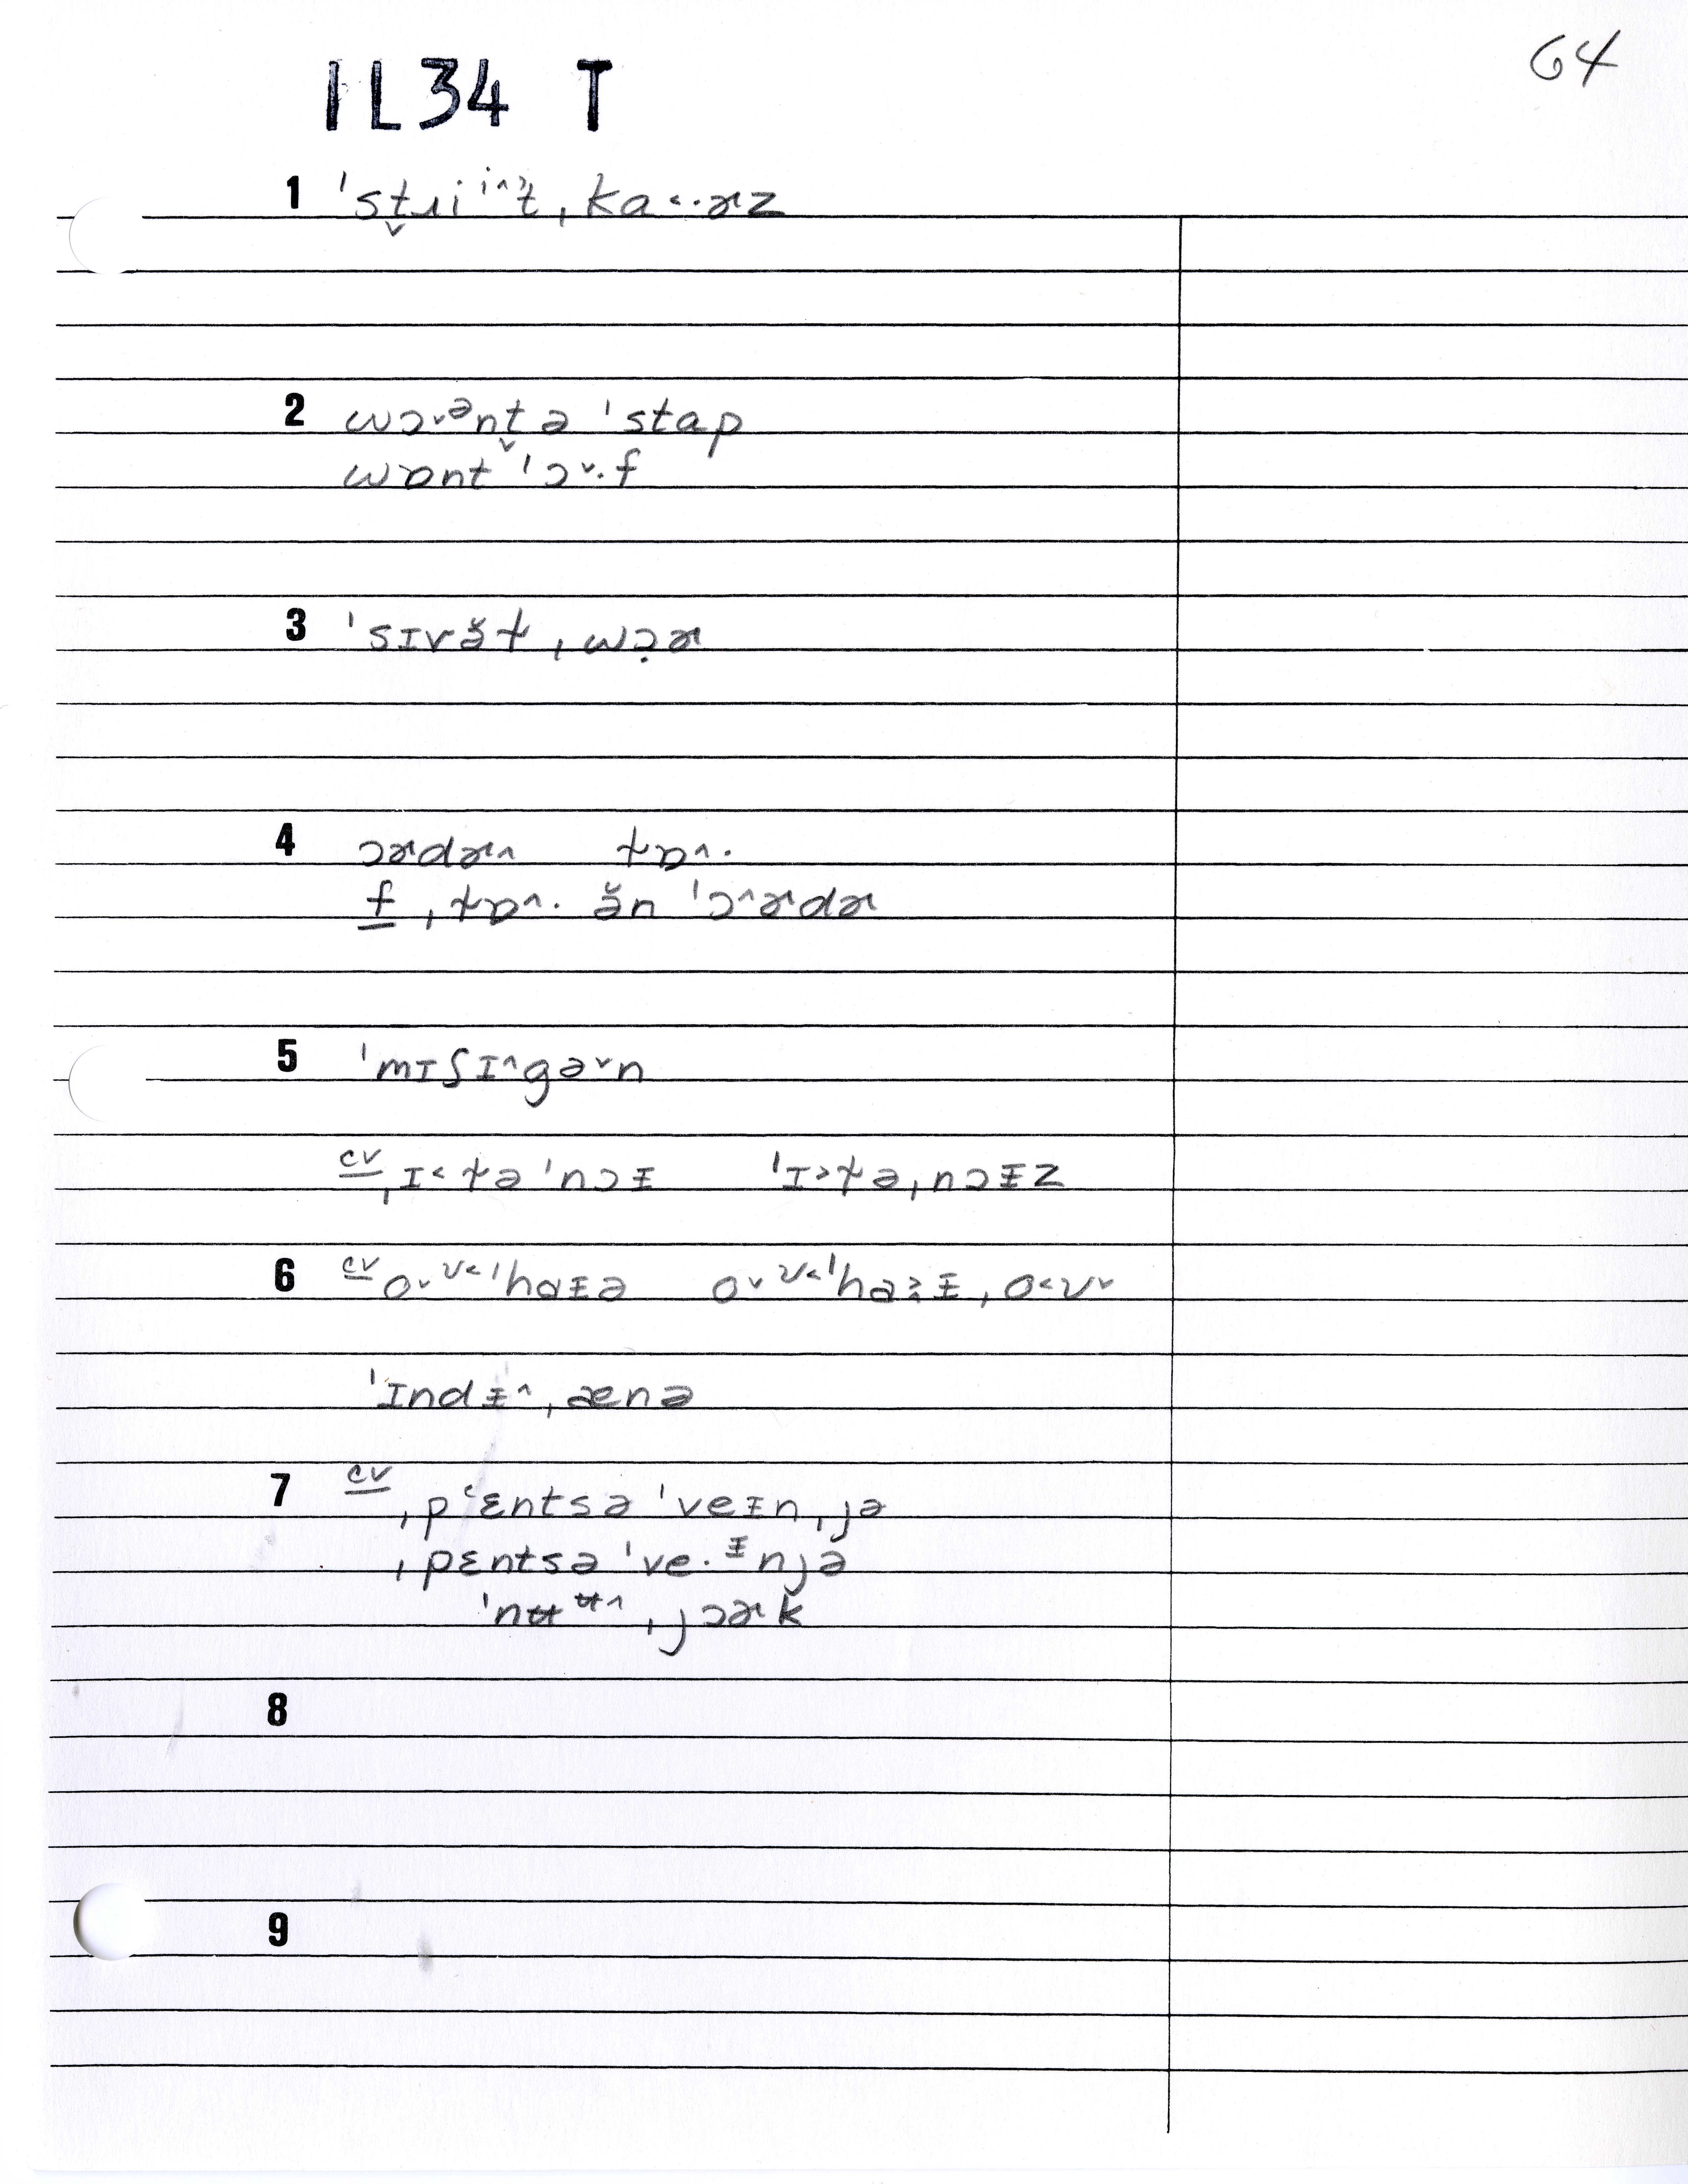 64
IL34 T
1 ˈst̬ɹiiˆt̬, ˌka˂·ɚz
2 wɔ˅ənt̬ə ˈstap
wɒnt ˈɔ˅·f
3 ˈsɪvə̆ɫ ˌwɔ̣ɚ
4 ɔɚdɚ˄ ɫɒ˄·
f ˌɫɒ˄· ə̆n ˈɔ˄ɚdɚ
5 ˈmɪʃɪ˄gə˅n
cv ˌɪ˂ɫə ˈnɔᵻ ˈɪ˃ɫəˌnɔᵻz
6 cv o˅ʊ˂ˈhaᵻə o˅ʊ˂ˈhaᵻˌo˂ʊ˅
ˈɪndᵻ˄ˌænə
7 cv
ˌpʻɛntsəˈveᵻnˌjə
ˌpɛntsəˈve·ᵻnjə
ˈnʉʉ˄ˌjɔɚk
8
9